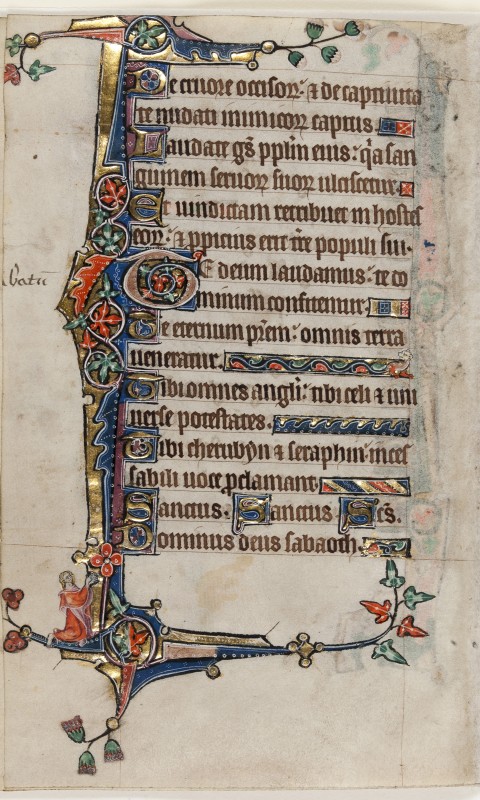 De cruore occisoꝝ: ⁊ de captiuita
te nudati inimicoꝝ capitis.
Laudate gẽs pplm eius: q̃a san
guinem seruoꝝ suoꝝ ulciscetur.
Et uindictam retribuet in hostes
eoꝝ: ⁊ ꝓpicius erit tr̃e populi sui.
Te deum laudamus: te do
minum confitemur.
Te eternum pr̃em: omnis terra
ueneratur.
Tibi omnes angl̃i: tibi celi ⁊ uni
uerse potestates.
Tibi cherubyn ⁊ seraphin: inces
sabili uoce ꝓclamant.
Sanctus. Sanctus. Sc̃s.
Dominus deus sabaoth.